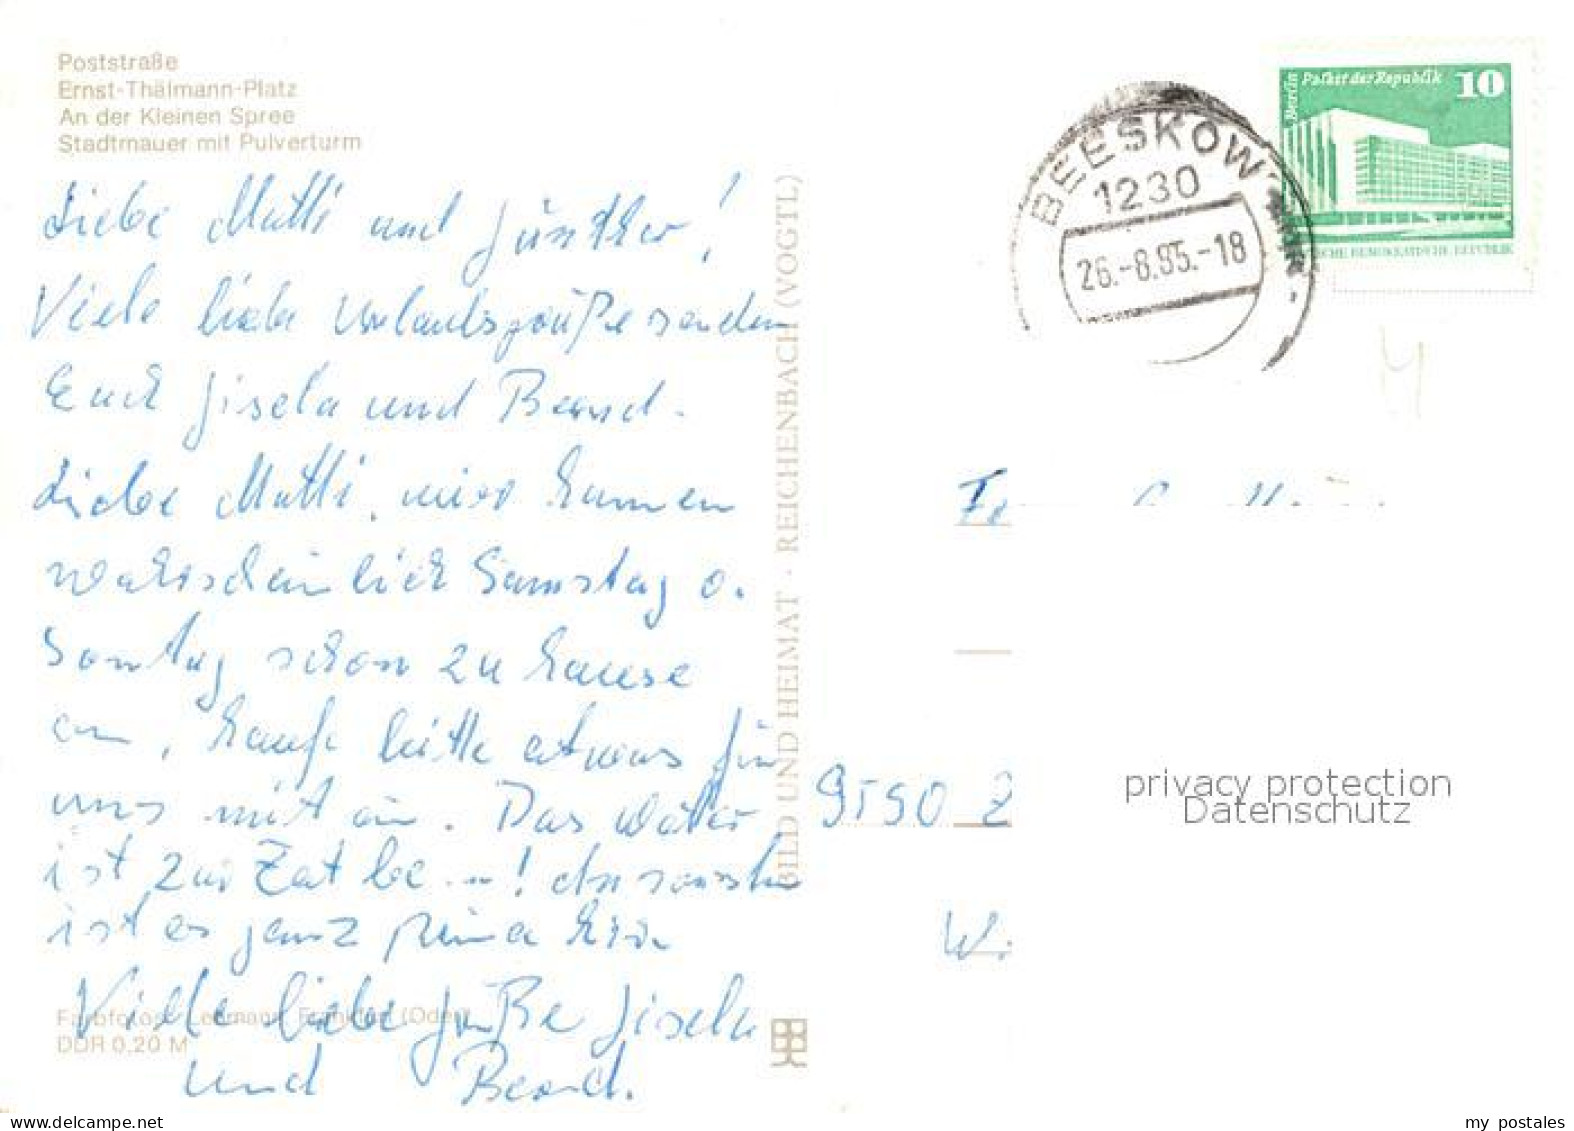 Poststraße
Ernst-Thälmann-Platz
An der Kleinen Spree
Stadtmauer mit Pulverturm
Liebe Mutti und Günther!
Viele liebe Urlaubsgrüße senden
Euch Gisela und Bernd.
Liebe Mutti, wir kommen
wahrscheinlich Samstag o.
Sonntag schon zu hause
an, kaufe bitte etwas für
uns mit ein. Das Wetter
ist zur Zeit be...! Ansonsten
ist es ganz prima hier
Viele liebe Grüße Gisela
und Bernd.
Farbfotos: Lehmann, Frankfurt (Oder)
DDR 0,20 M
BILD UND HEIMAT · REICHENBACH (VOGTL)
BEESKOW
1230
26.-8.85.-18
Berlin Palast der Republik 10
DEUTSCHE DEMOKRATISCHE REPUBLIK
9550 Z
privacy protection
Datenschutz
www.delcampe.net
my postales